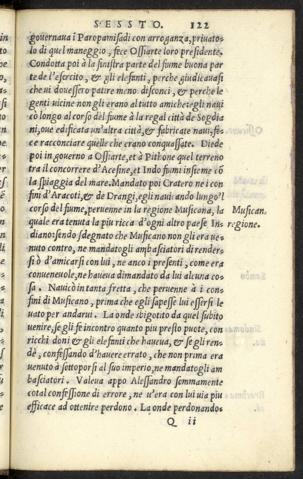 SESSTO. 122
gouernaua i Paropamisadi con arroganza, priuato-
lo di quel maneggio, fece Ossiarte loro presidente.
Condotta poi à la sinistra parte del fiume buona par
te de l'esercito, & gli elefanti, perche giudicauasi
che ui douessero patire meno disconci, & perche le
genti uicine non gli erano al tutto amiche: egli naui
cò longo al corso del fiume à la regal città de Sogdia
ni, oue edificata un'altra città, & fabricate naui, fe-
ce racconciare quelle che erano conquassate. Diede
poi in gouerno a Ossiarte, et à Pithone quel terreno
tra il concorrere d'Acesine, et Indo fiumi insieme cõ
la spiaggia del mare. Mandato poi Cratero ne i con
fini d'Aracoti, & de Drangi, egli nauicando lungo'l
corso del fiume, peruenne in la regione Musicana, la
quale era tenuta la piu ricca d'ogni altro paese In-
diano: sendo sdegnato che Musicano non gli era ue-
nuto contro, ne mandatogli ambasciatori di render-
si ò d'amicarsi con lui, ne anco i presenti, come era
conueneuole, ne haueua dimandato da lui alcuna co-
sa. Nauicò in tanta fretta, che peruenne à i con-
fini di Musicano, prima che egli sapesse lui essersi le
uato per andarui. La onde sbigotito da quel subito
uenire, se gli fe incontro quanto piu presto puote, con
ricchi doni & gli elefanti che haueua, & se gli ren-
dè, confessando d'hauere errato, che non prima era
uenuto à sottoporsi al suo imperio, ne mandatogli am
basciatori. Valeua appo Alessandro sommamente
cotal confessione di errore, ne u'era con lui uia piu
efficace ad ottenire perdono. La onde perdonando-
Q ii
Musican.
regione.